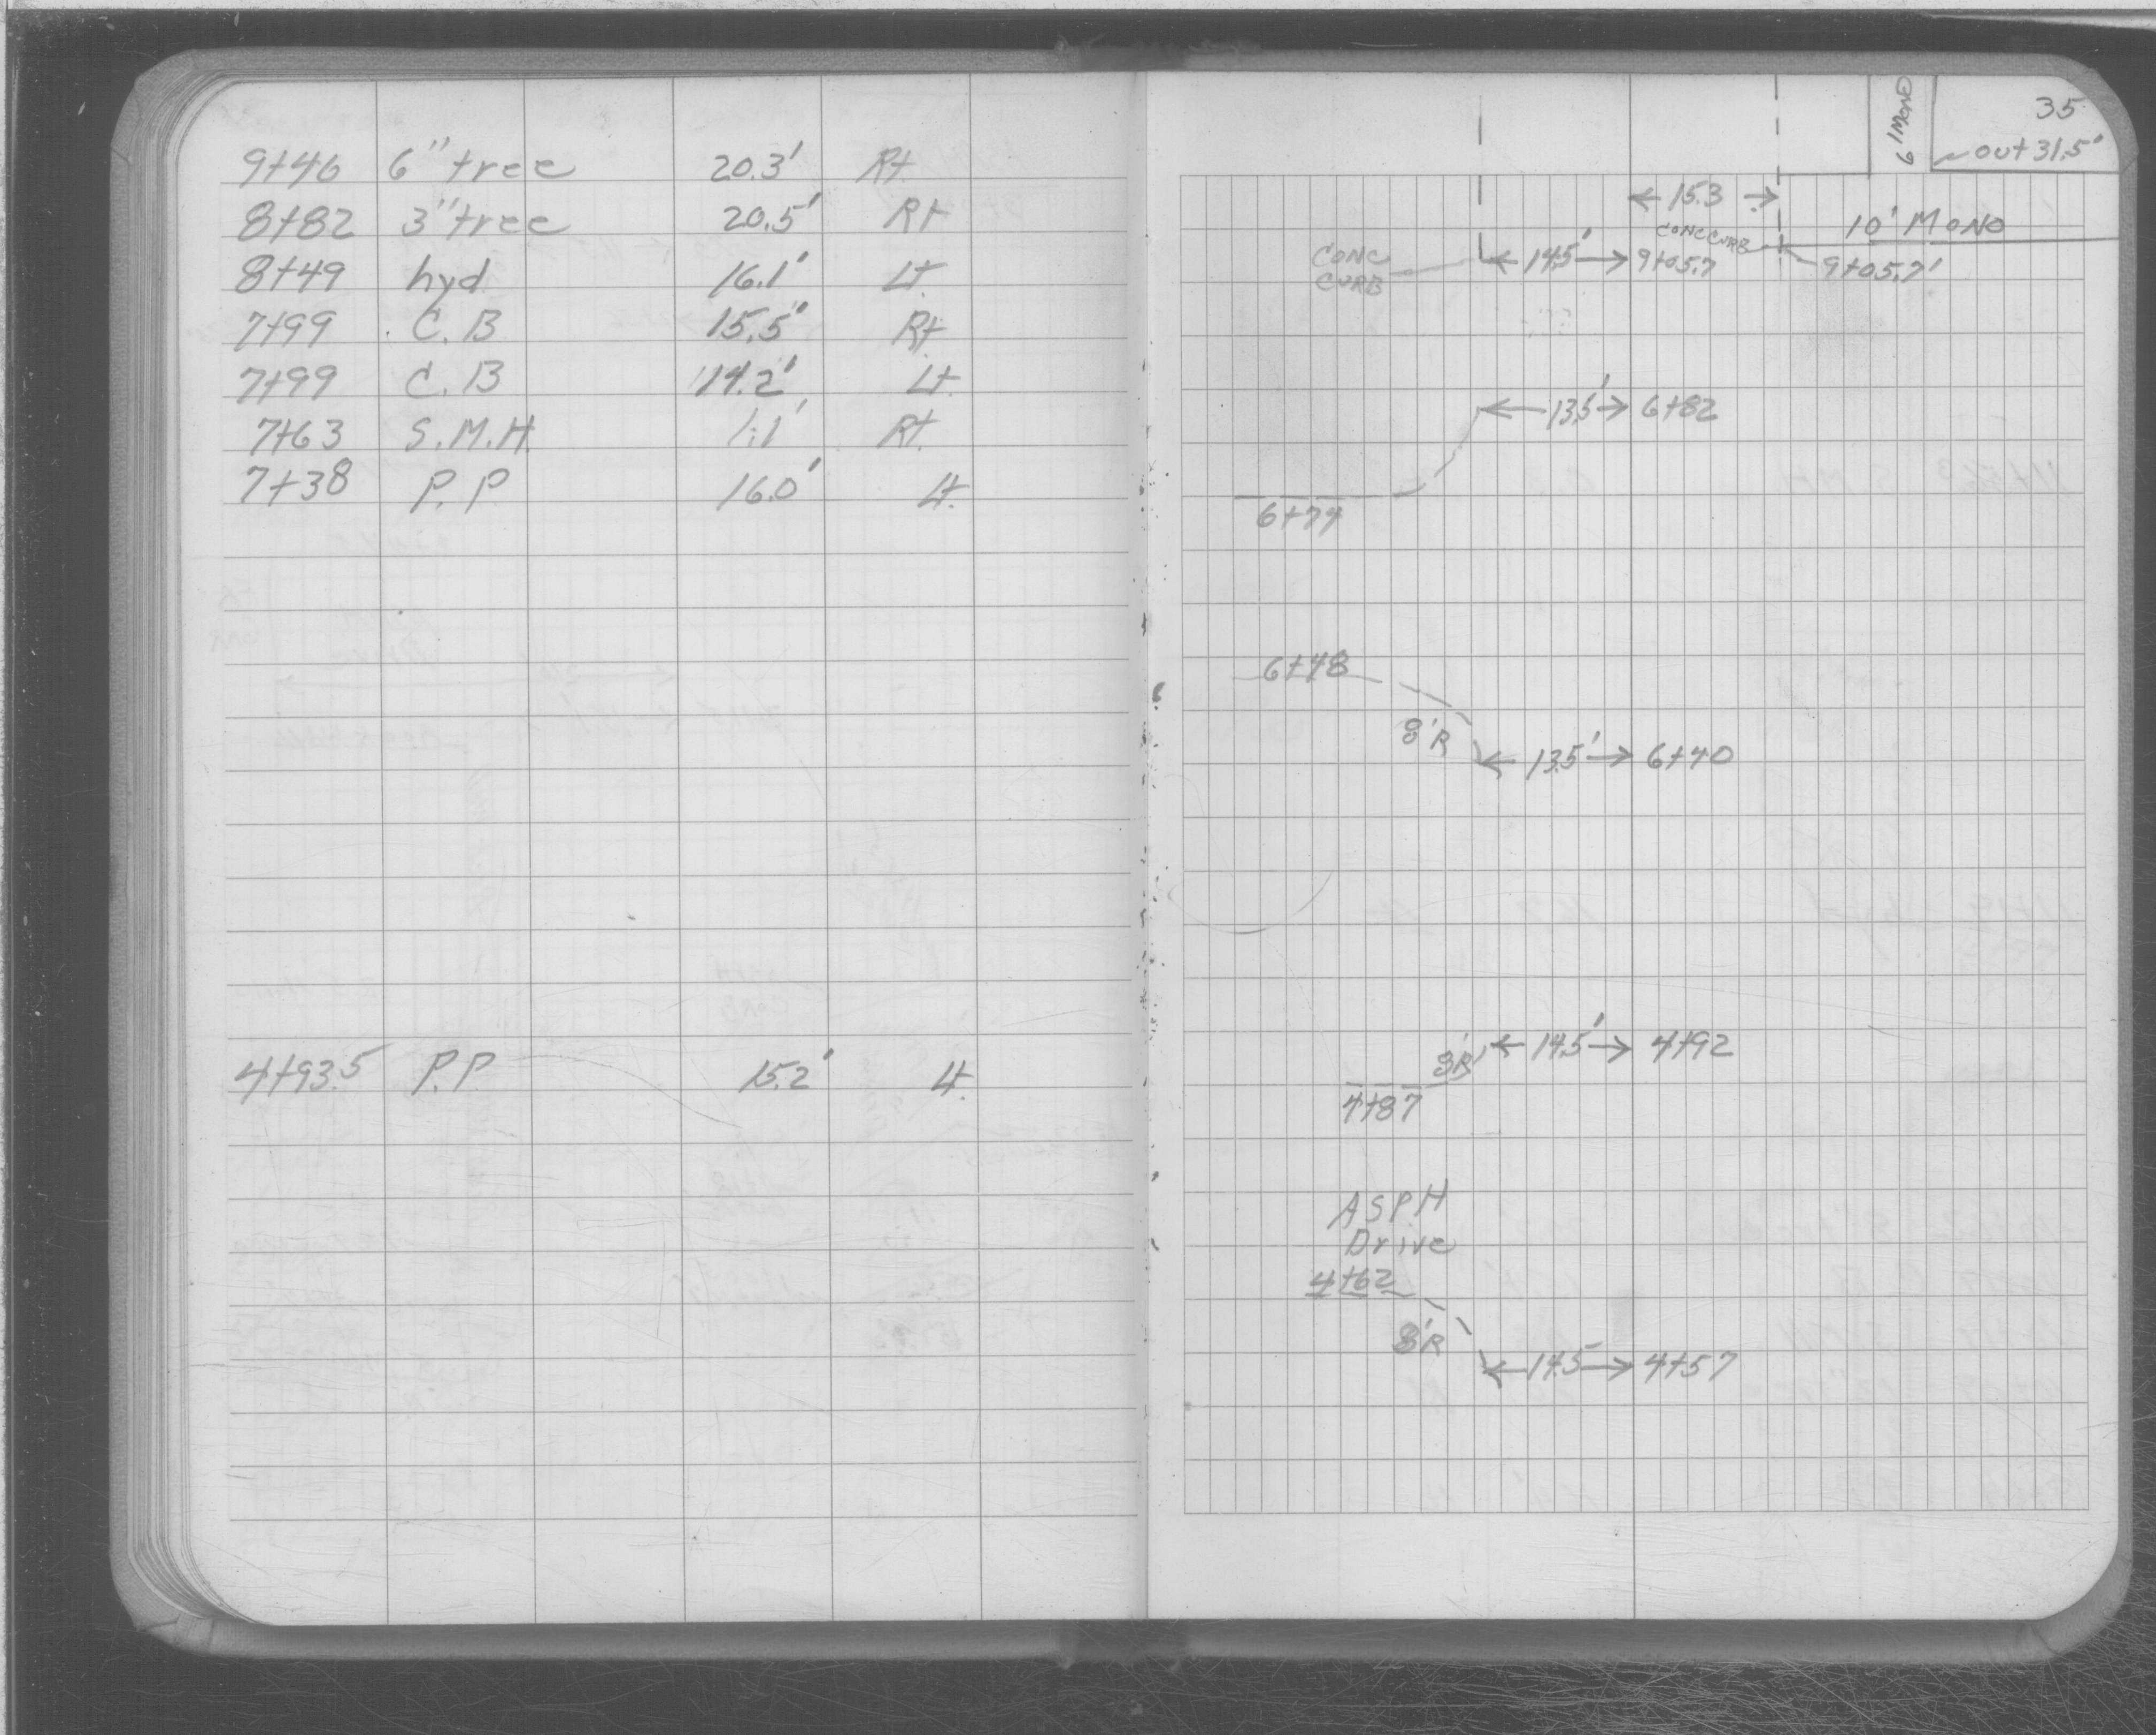 9+46 6" tree 20.3' Rt
8+82 3" tree 20.5' Rt
8+49 hyd 16.1' Lt.
7+99 C.B 15.5' Rt
7+99 C.B 14.2' Lt
7+63 S.M.H. 1.1' Rt.
7+38 P.P 16.0' Lt.
4+93.5 P.P. 15.2' Lt.
35
6' MONO
out 31.5'
15.3
CONC CURB
10' MONO
CONC
CURB
14.5' 9+05.7
9+05.7'
13.5' 6+82
6+74
6+48
8'R
13.5' 6+40
8'R 14.5' 4+92
4+87
ASPH
Drive
4+62
8'R
14.5 4+57